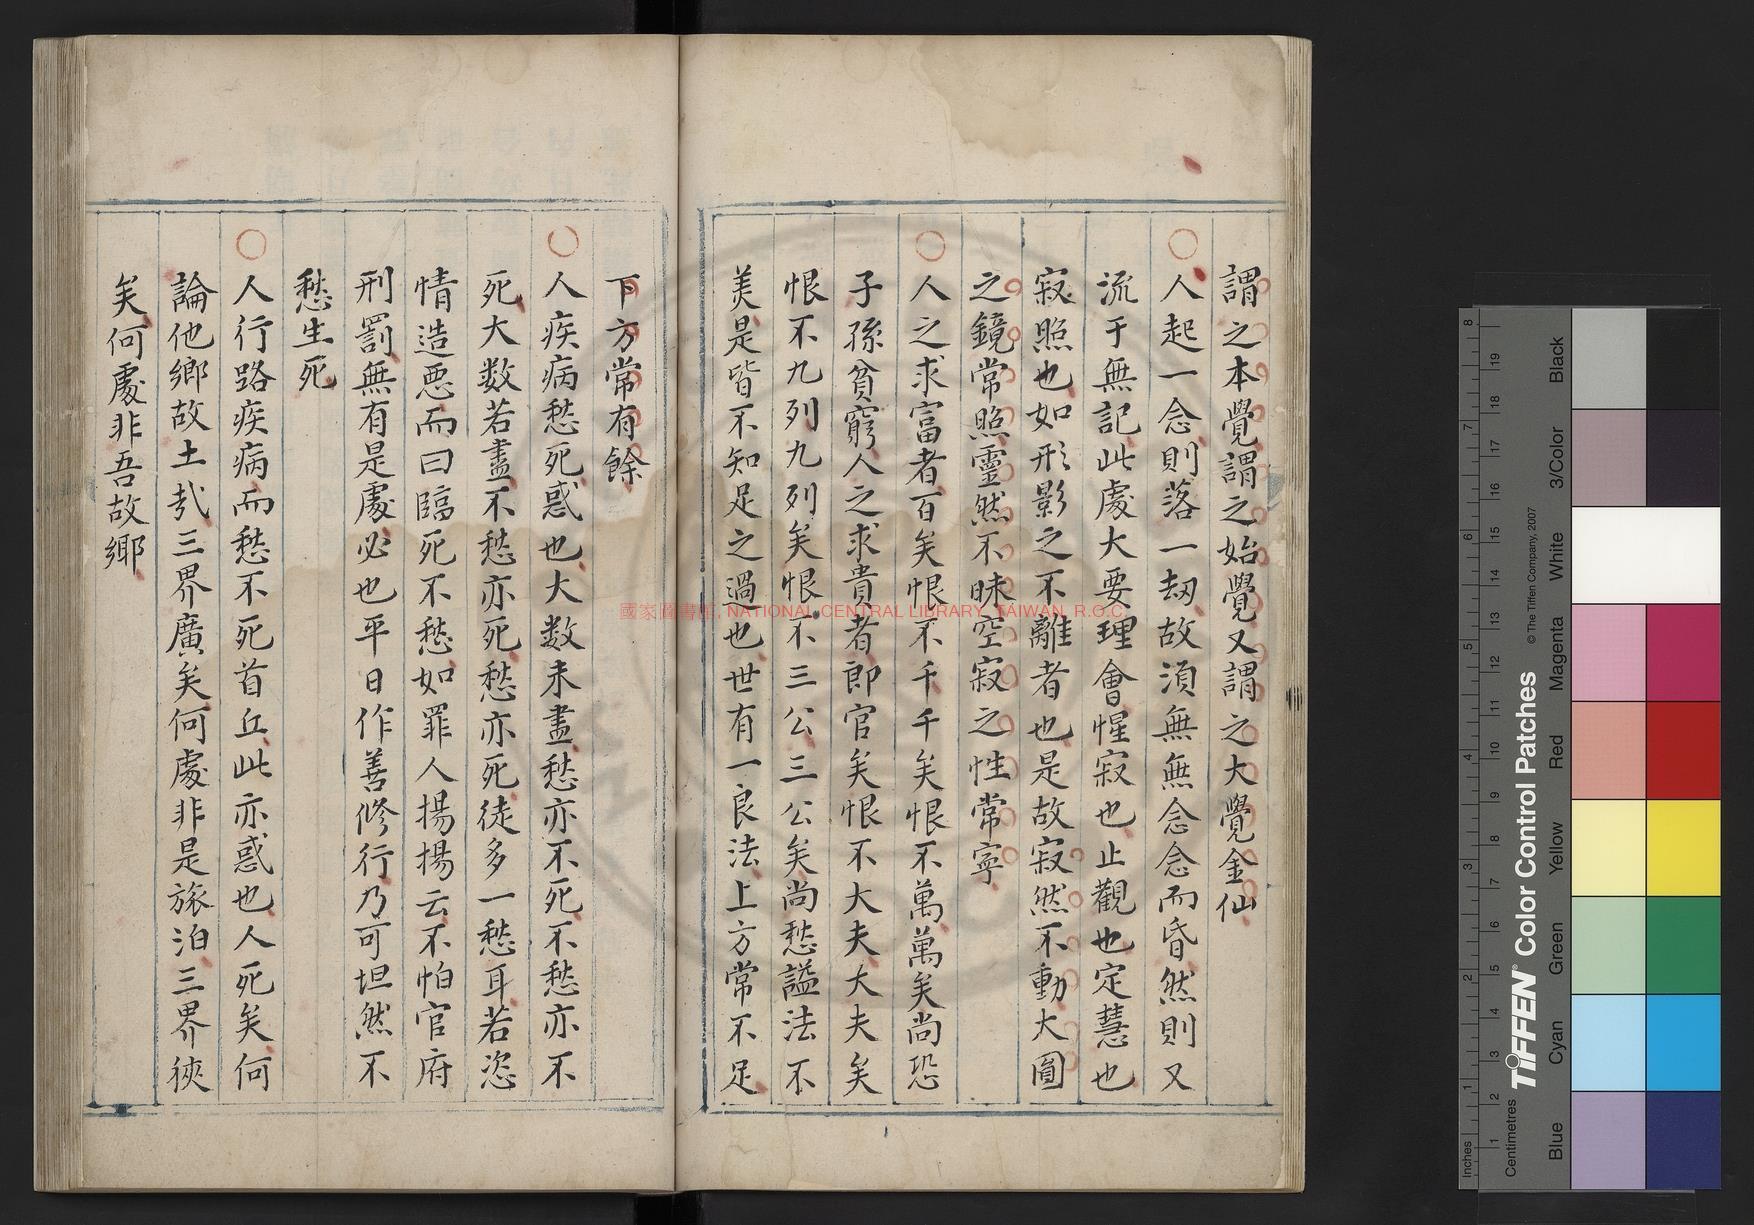 謂之本覺謂之始覺又謂之大覺金仙
○人起一念則落一劫故須無無念念而昏然則又
流于無記此處大要理會惺寂也止觀也定慧也
寂照也如形影之不離者也是故寂然不動大圓
之鏡常照靈然不昧空寂之性常寧
○人之求富者百矣恨不千千矣恨不萬萬矣尚恐
子孫貧窮人之求貴者郎官矣恨不大夫大夫矣
恨不九列九列矣恨不三公三公矣尚愁謚法不
美是皆不知足之過也世有一良法上方常不足
下方常有餘
○人疾病愁死惑也大数未盡愁亦不死不愁亦不
死大数若盡不愁亦死愁亦死徒多一愁耳若恣
情造悪而曰臨死不愁如罪人揚揚云不怕官府
刑罰無有是處必也平日作善修行乃可坦然不
愁生死
○人行路疾病而愁不死首丘此亦惑也人死矣何
論他鄉故土哉三界廣矣何處非是旅泊三界狹
矣何處非吾故鄉
國家圖書館, NATIONAL CENTRAL LIBRARY, TAIWAN, R.O.C.
TIFFEN® Color Control Patches
© The Tiffen Company, 2007
Inches
Centimetres
1 2 3 4 5 6 7 8
1 2 3 4 5 6 7 8 9 10 11 12 13 14 15 16 17 18 19
Blue
Cyan
Green
Yellow
Red
Magenta
White
3/Color
Black